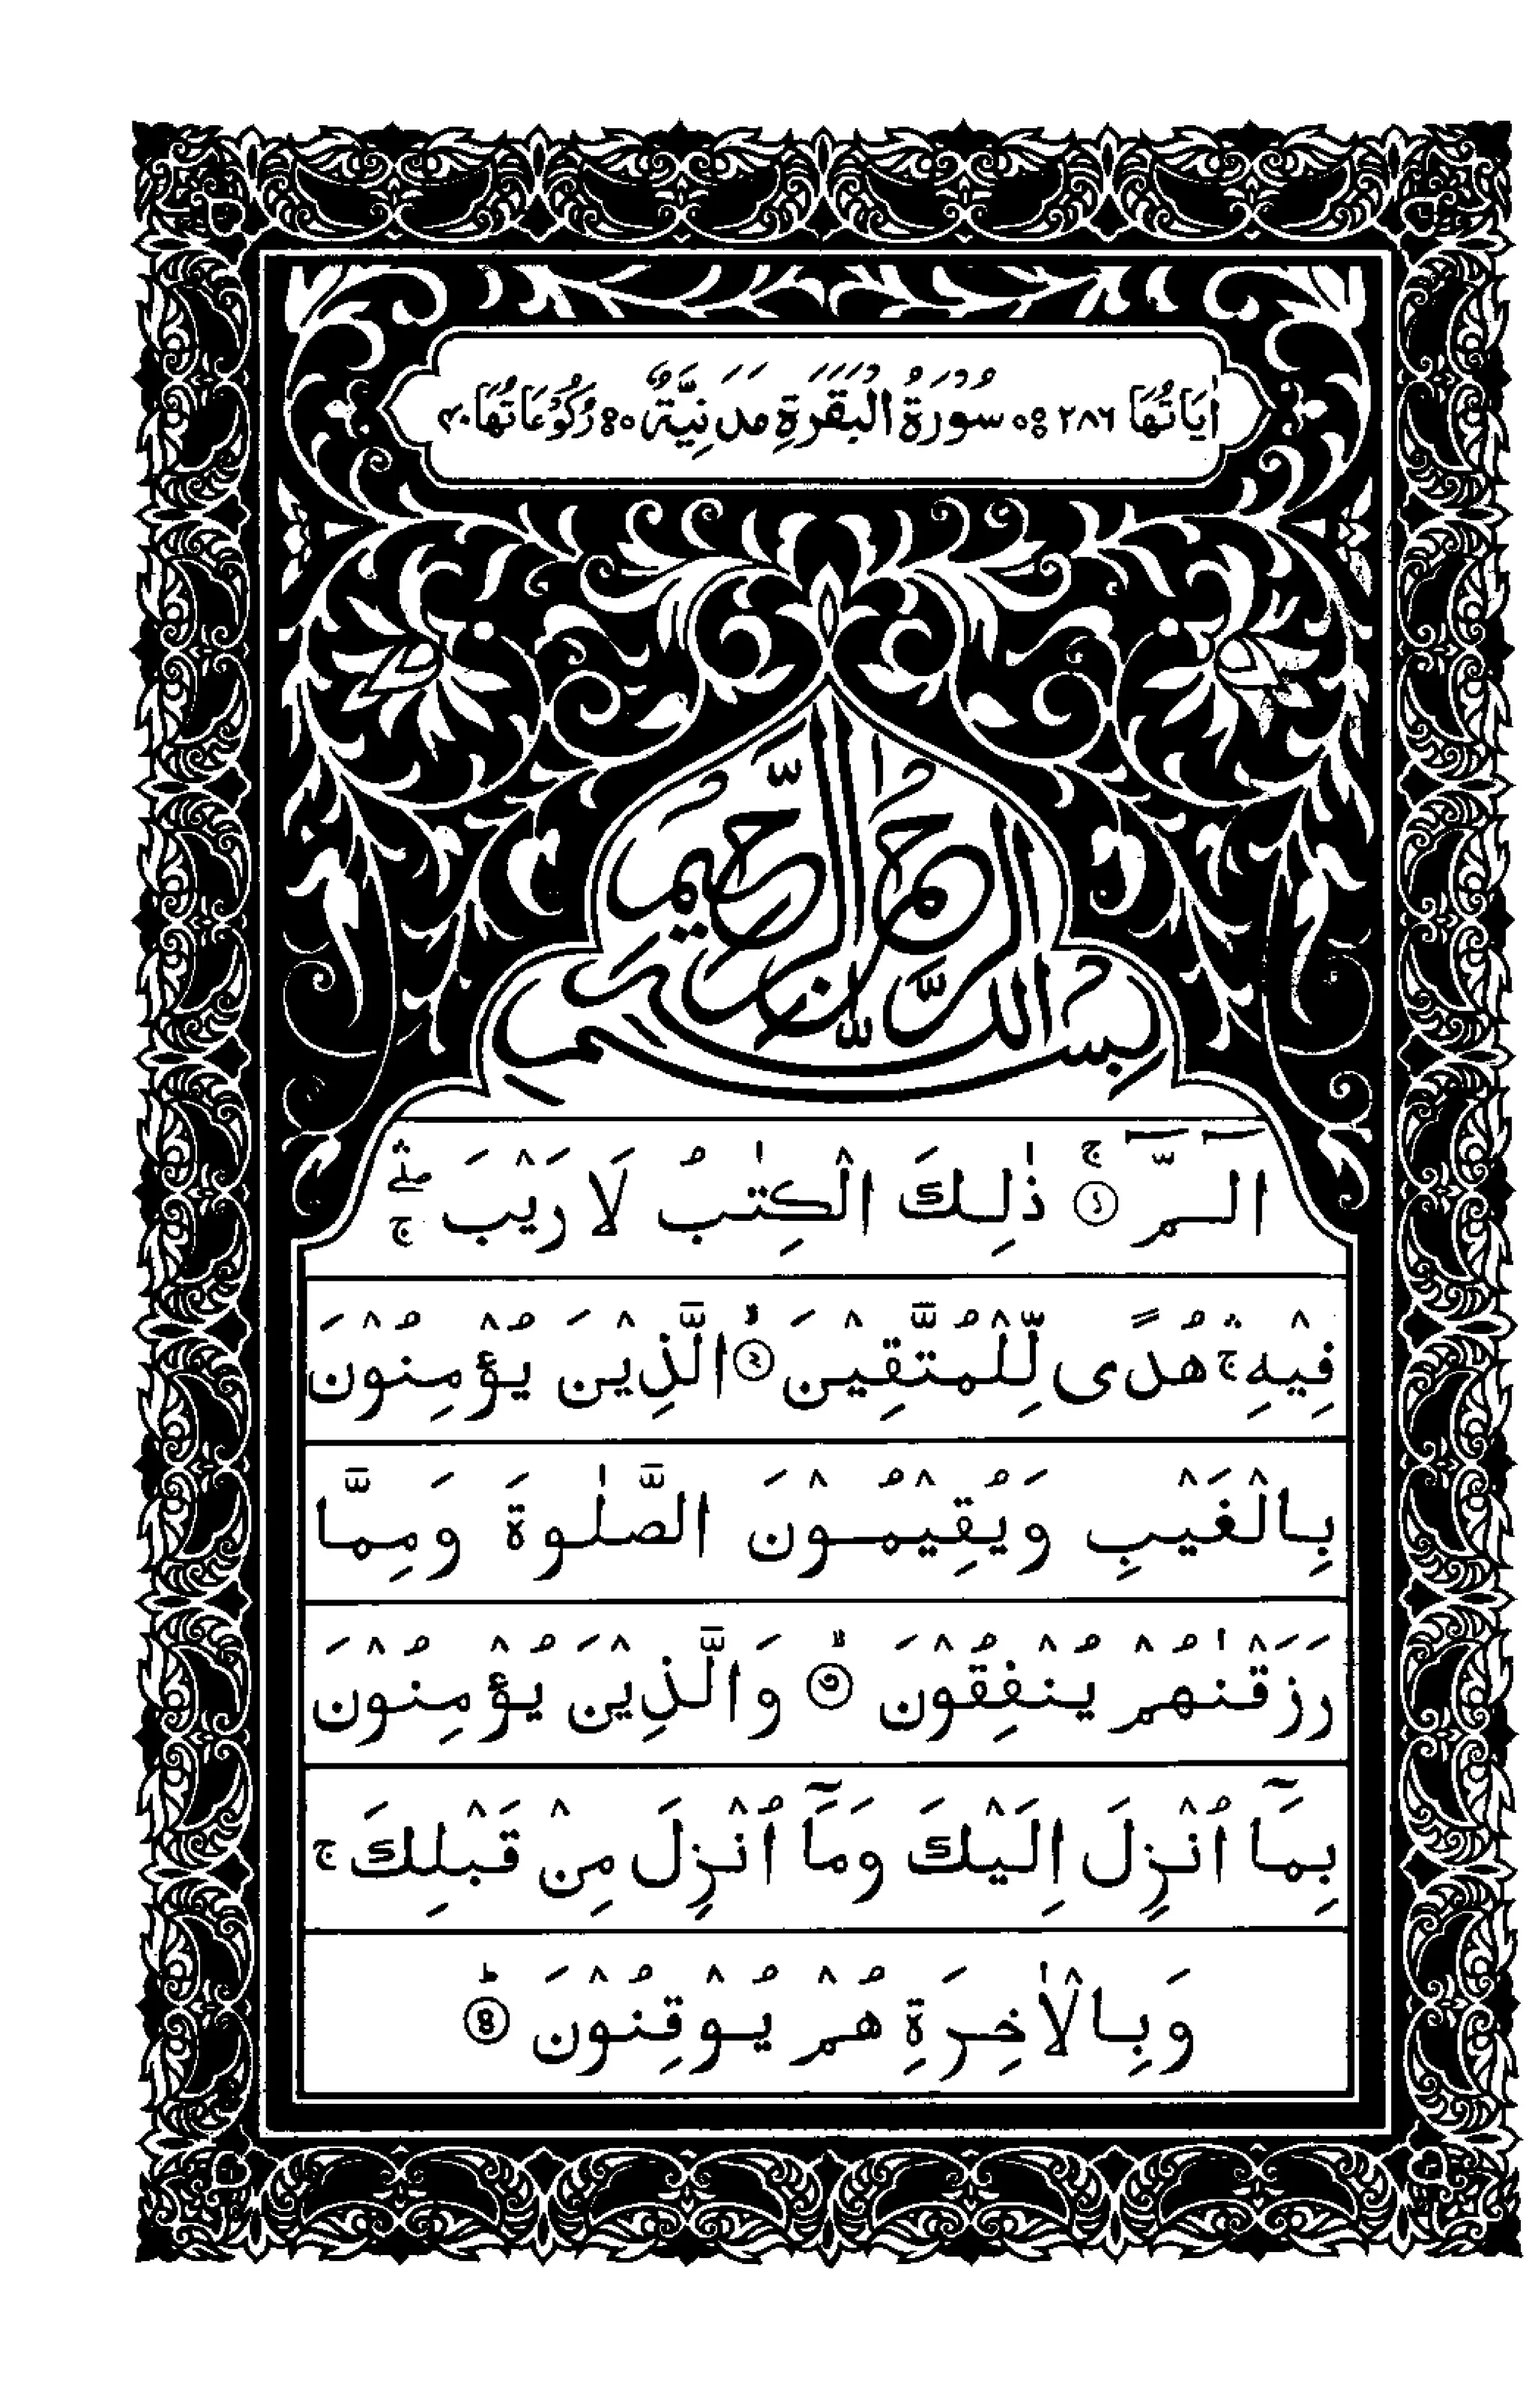 اٰيَاتُهَا ٢٨٦ سُوْرَةُ الْبَقَرَةِ مَدَنِيَّةٌ رُكُوْعَاتُهَا ٤٠
بِسْمِ اللّٰهِ الرَّحْمٰنِ الرَّحِيْمِ
الٓـمّٓ ۚ ﴿۱﴾ ذٰلِكَ الْكِتٰبُ لَا رَيْبَ ۛۖۚ
فِيْهِ ۛۚ هُدًى لِّلْمُتَّقِيْنَ ۙ ﴿۲﴾ الَّذِيْنَ يُؤْمِنُوْنَ
بِالْغَيْبِ وَيُقِيْمُوْنَ الصَّلٰوةَ وَمِمَّا
رَزَقْنٰهُمْ يُنْفِقُوْنَ ۙ ﴿۳﴾ وَالَّذِيْنَ يُؤْمِنُوْنَ
بِمَآ اُنْزِلَ اِلَيْكَ وَمَآ اُنْزِلَ مِنْ قَبْلِكَ ۚ
وَبِالْاٰخِرَةِ هُمْ يُوْقِنُوْنَ ؕ ﴿۴﴾